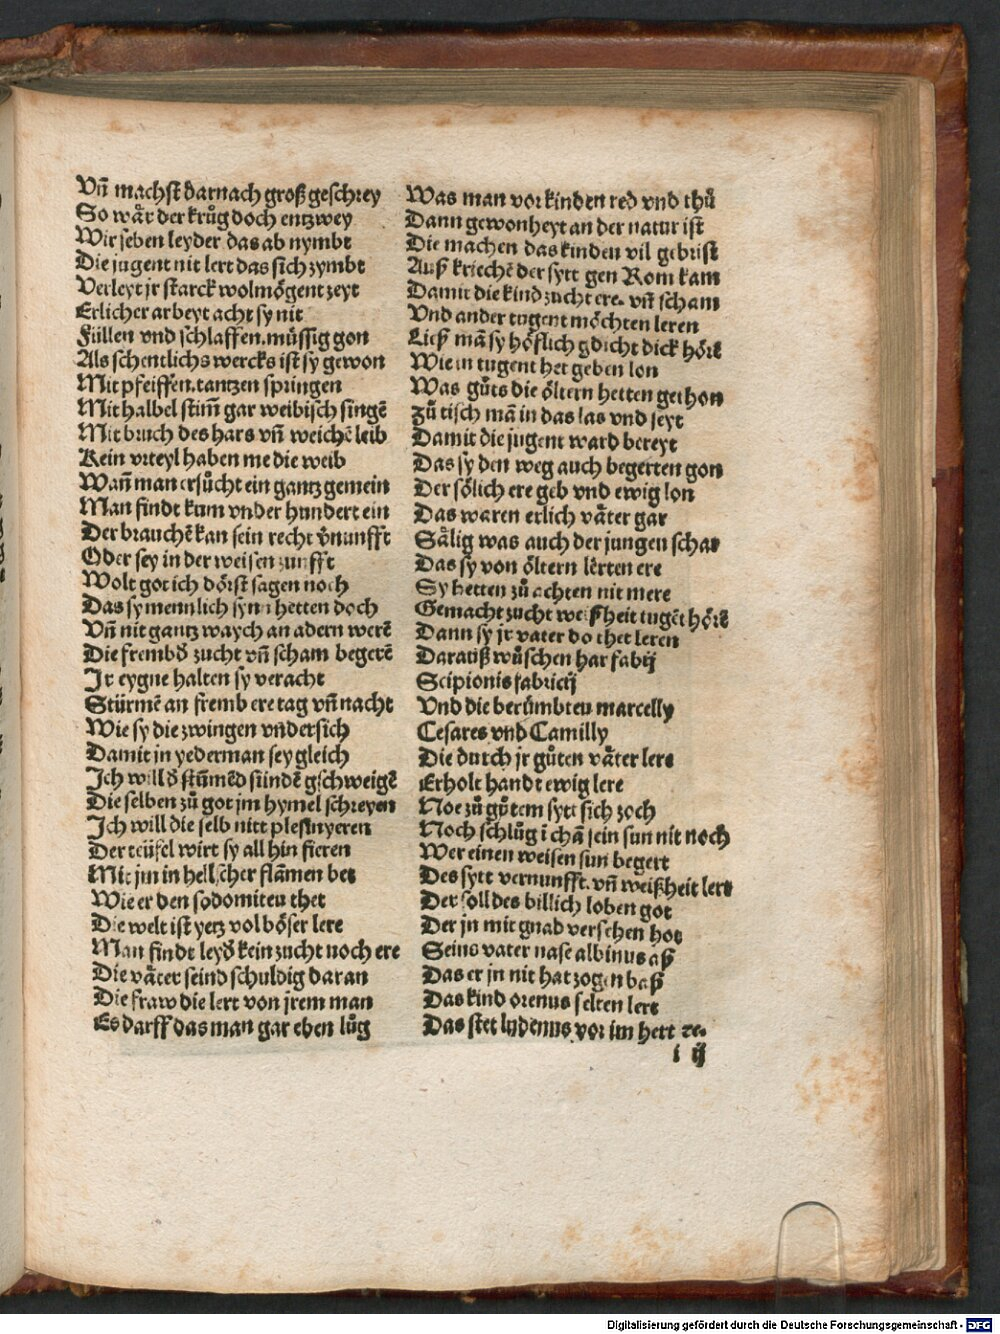 Vñ machst darnach groß geschrey
So wår der krůg doch entzwey
Wir sehen leyder das ab nymbt
Die jugent nit lert das sich zymbt
Verleyt jr starck wolmögent zeyt
Erlicher arbeyt acht sy nit
Füllen vnd schlaffen.müssig gon
Als schentlichs wercks ist sy gewon
Mit pfeiffen.tantzen springen
Mit halbel stim̄ gar weibisch singē
Mit bruch des hars vñ weichē leib
Kein vrteyl haben me die weib
Wañ man ersůcht ein gantz gemein
Man findt kum vnder hundert ein
Der brauchē kan sein recht v̄nunfft
Oder sey in der weisen zunfft
Wolt got ich dörst sagen noch
Das sy mennlich synn hetten doch
Vñ nit gantz waych an adern werē
Die frembd zucht vñ scham begerē
Jr eygne halten sy veracht
Stürmē an fremb ere tag vñ nacht
Wie sy die zwingen vndersich
Damit in yederman sey gleich
Jch will d stūmēd sündē gschweigē
Die selben zů got jm hymel schreyen
Jch will die selb nitt plesinyeren
Der teüfel wirt sy all hin fieren
Mit jm in hellscher flāmen bet
Wie er den sodomiten thet
Die welt ist yetz vol böser lere
Man findt leyd kein zucht noch ere
Die våter seind schuldig daran
Die fraw die lert von jrem man
Es darff das man gar eben lůg
Was man vor kinden red vnd thů
Dann gewonheyt an der natur ist
Die machen das kinden vil gebrist
Auß kriechē der sytt gen Rom kam
Damit die kind zucht ere. vñ scham
Vnd ander tugent möchten leren
Ließ mā sy höflich gdicht dick hörē
Wie in tugent het geben lon
Was gůts die öltern hetten gethon
Zů tisch mā in das las vnd seyt
Damit die jugent ward bereyt
Das sy den weg auch begerten gon
Der sölich ere geb vnd ewig lon
Das waren erlich våter gar
Sålig was auch der jungen schar
Das sy von öltern lerten ere
Sy hetten zů achten nit mere
Gemacht zucht weißheit tugēt hörē
Dann sy jr vater do thet leren
Darauß wůschen har fabij
Scipionis fabricij
Vnd die berůmbten marcelly
Cesares vnd Camilly
Die durch jr gůten våter lere
Erholt handt ewig lere
Noe zů gůtem sytt sich zoch
Noch schlůg ī chā sein sun nit noch
Wer einen weisen sun begert
Des sytt vernunfft.vñ weißheit lert
Der soll des billich loben got
Der jn mit gnad versehen hot
Seins vater nase albinus aß
Das er jn nit hat zogen baß
Das kind orenus selten lert
Das stet lydenus vor im hett ꝛc.
i ij
Digitalisierung gefördert durch die Deutsche Forschungsgemeinschaft - DFG